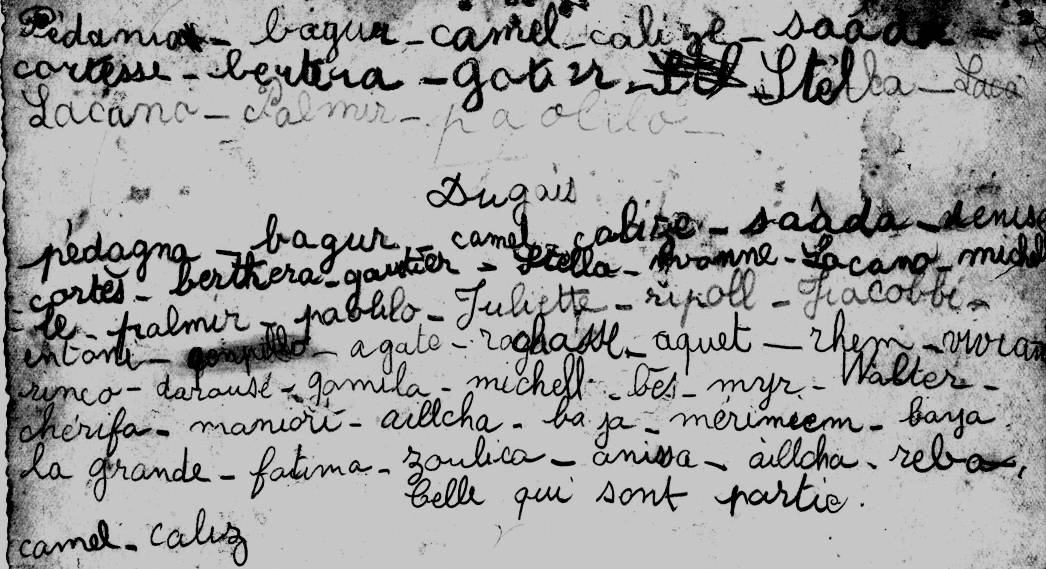 Pédania - bagur - camel - calize - saada -
cortesse - bertera - gotier - Stella - Laca
Lacano - Palmir - paolilo -
Dugais
pédagna - bagur camel calize - saâda - denise
cortès - berthera - gautier - Stella - yvonne - Lacano - michel
le - palmir - paolilo - Juliette - ripoll - Jiacobbi -
entoni - - agate - raghasse - aquet - rhem - vivian
rinco - darause - gamila - michell - bes - myr - Walter -
chérifa - maniori - aillcha - baja - mérimeem - baya
la grande - fatima - zoulica - anissa - àillcha - reba
Celle qui sont partie.
camel - caliz